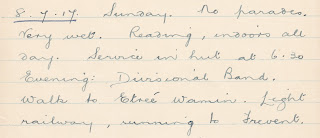 8.7.17. Sunday. No parades.
Very wet. Reading, indoors all
day. Service in hut at 6.30
Evening: Divisional Band.
Walk to Etreé Wamin. Light
railway, running to Frevent.